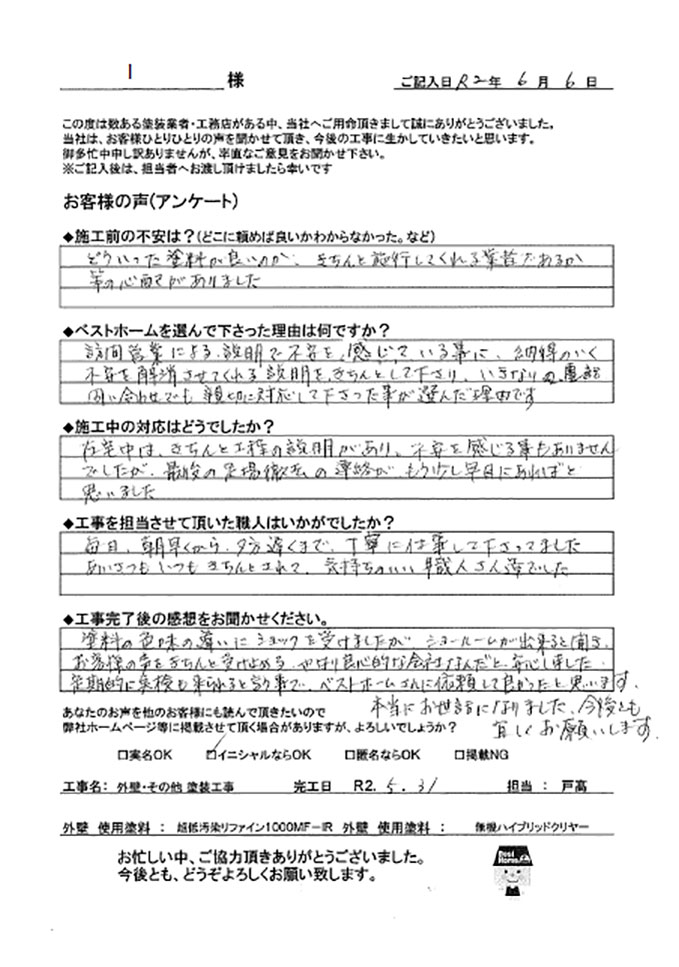 I 様
ご記入日 R2年 6月 6日
この度は数ある塗装業者・工務店がある中、当社へご用命頂きまして誠にありがとうございました。
当社は、お客様ひとりひとりの声を聞かせて頂き、今後の工事に生かしていきたいと思います。
御多忙中申し訳ありませんが、率直なご意見をお聞かせ下さい。
※ご記入後は、担当者へお渡し頂けましたら幸いです
お客様の声(アンケート)
◆施工前の不安は?(どこに頼めば良いかわからなかった。など)
どういった塗料が良いのか、きちんと施行してくれる業者であるか
等の心配がありました
◆ベストホームを選んで下さった理由は何ですか?
訪問営業による説明で不安を感じている事に、納得のいく
不安を解消させてくれる説明をきちんとして下さり、いきなりの電話
問い合わせでも親切に対応して下さった事が選んだ理由です
◆施工中の対応はどうでしたか?
在宅中は、きちんと工程の説明があり、不安を感じる事もありません
でしたが、最後の足場撤去の連絡が、もう少し早目にあればと
思いました
◆工事を担当させて頂いた職人はいかがでしたか?
毎日、朝早くから、夕方遅くまで、丁寧に仕事して下さってました
あいさつもいつもきちんとされて、気持ちのいい職人さん達でした
◆工事完了後の感想をお聞かせください。
塗料の色味の違いにショックを受けましたが ショールームが出来ると聞き、
お客様の声をきちんと受け止める、やはり良心的な会社なんだと、安心しました。
定期的に点検も来られると言う事で、ベストホームさんに依頼して良かったと思います。
本当にお世話になりました、今後とも
宜しくお願いします。
あなたのお声を他のお客様にも読んで頂きたいので
弊社ホームページ等に掲載させて頂く場合がありますが、よろしいでしょうか?
□実名OK ☑イニシャルならOK □匿名ならOK □掲載NG
工事名: 外壁・その他 塗装工事 完工日 R2. 5. 31 担当 : 戸高
外壁 使用塗料 : 超低汚染リファイン1000MF-IR 外壁 使用塗料 : 無機ハイブリッドクリヤー
お忙しい中、ご協力頂きありがとうございました。
今後とも、どうぞよろしくお願い致します。
Best Home